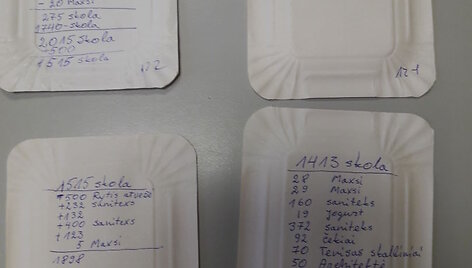 - 20 Maxsi
275 skola
1740 - skola
2015 skola
-500
1515 skola
12-1
1515 skola
+500 Rytis atvežė
+232 saniteks
+132
+400 saniteks
+123
5 Maxsi
1898
1413 skola
28 Maxsi
29 Maxsi
160 saniteks
19 jogurt
372 saniteks
92 čekiai
70 Tenisas stalčiniai
50 Architekte